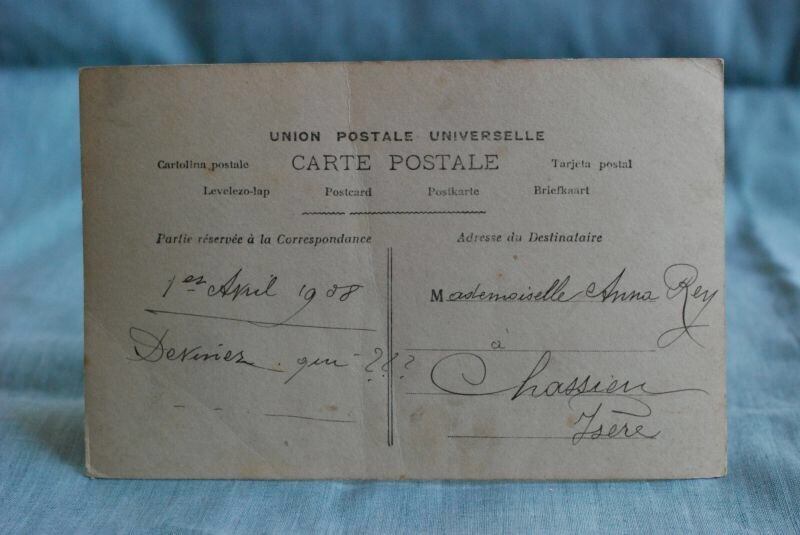 UNION POSTALE UNIVERSELLE
Cartolina postale CARTE POSTALE Tarjeta postal
Levelezo-lap Postcard Postkarte Briefkaart
Partie réservée à la Correspondance
1er Avril 1908
Devinez qui ???
Adresse du Destinataire
Mademoiselle Anna Rey
à
Chassieu
Isère